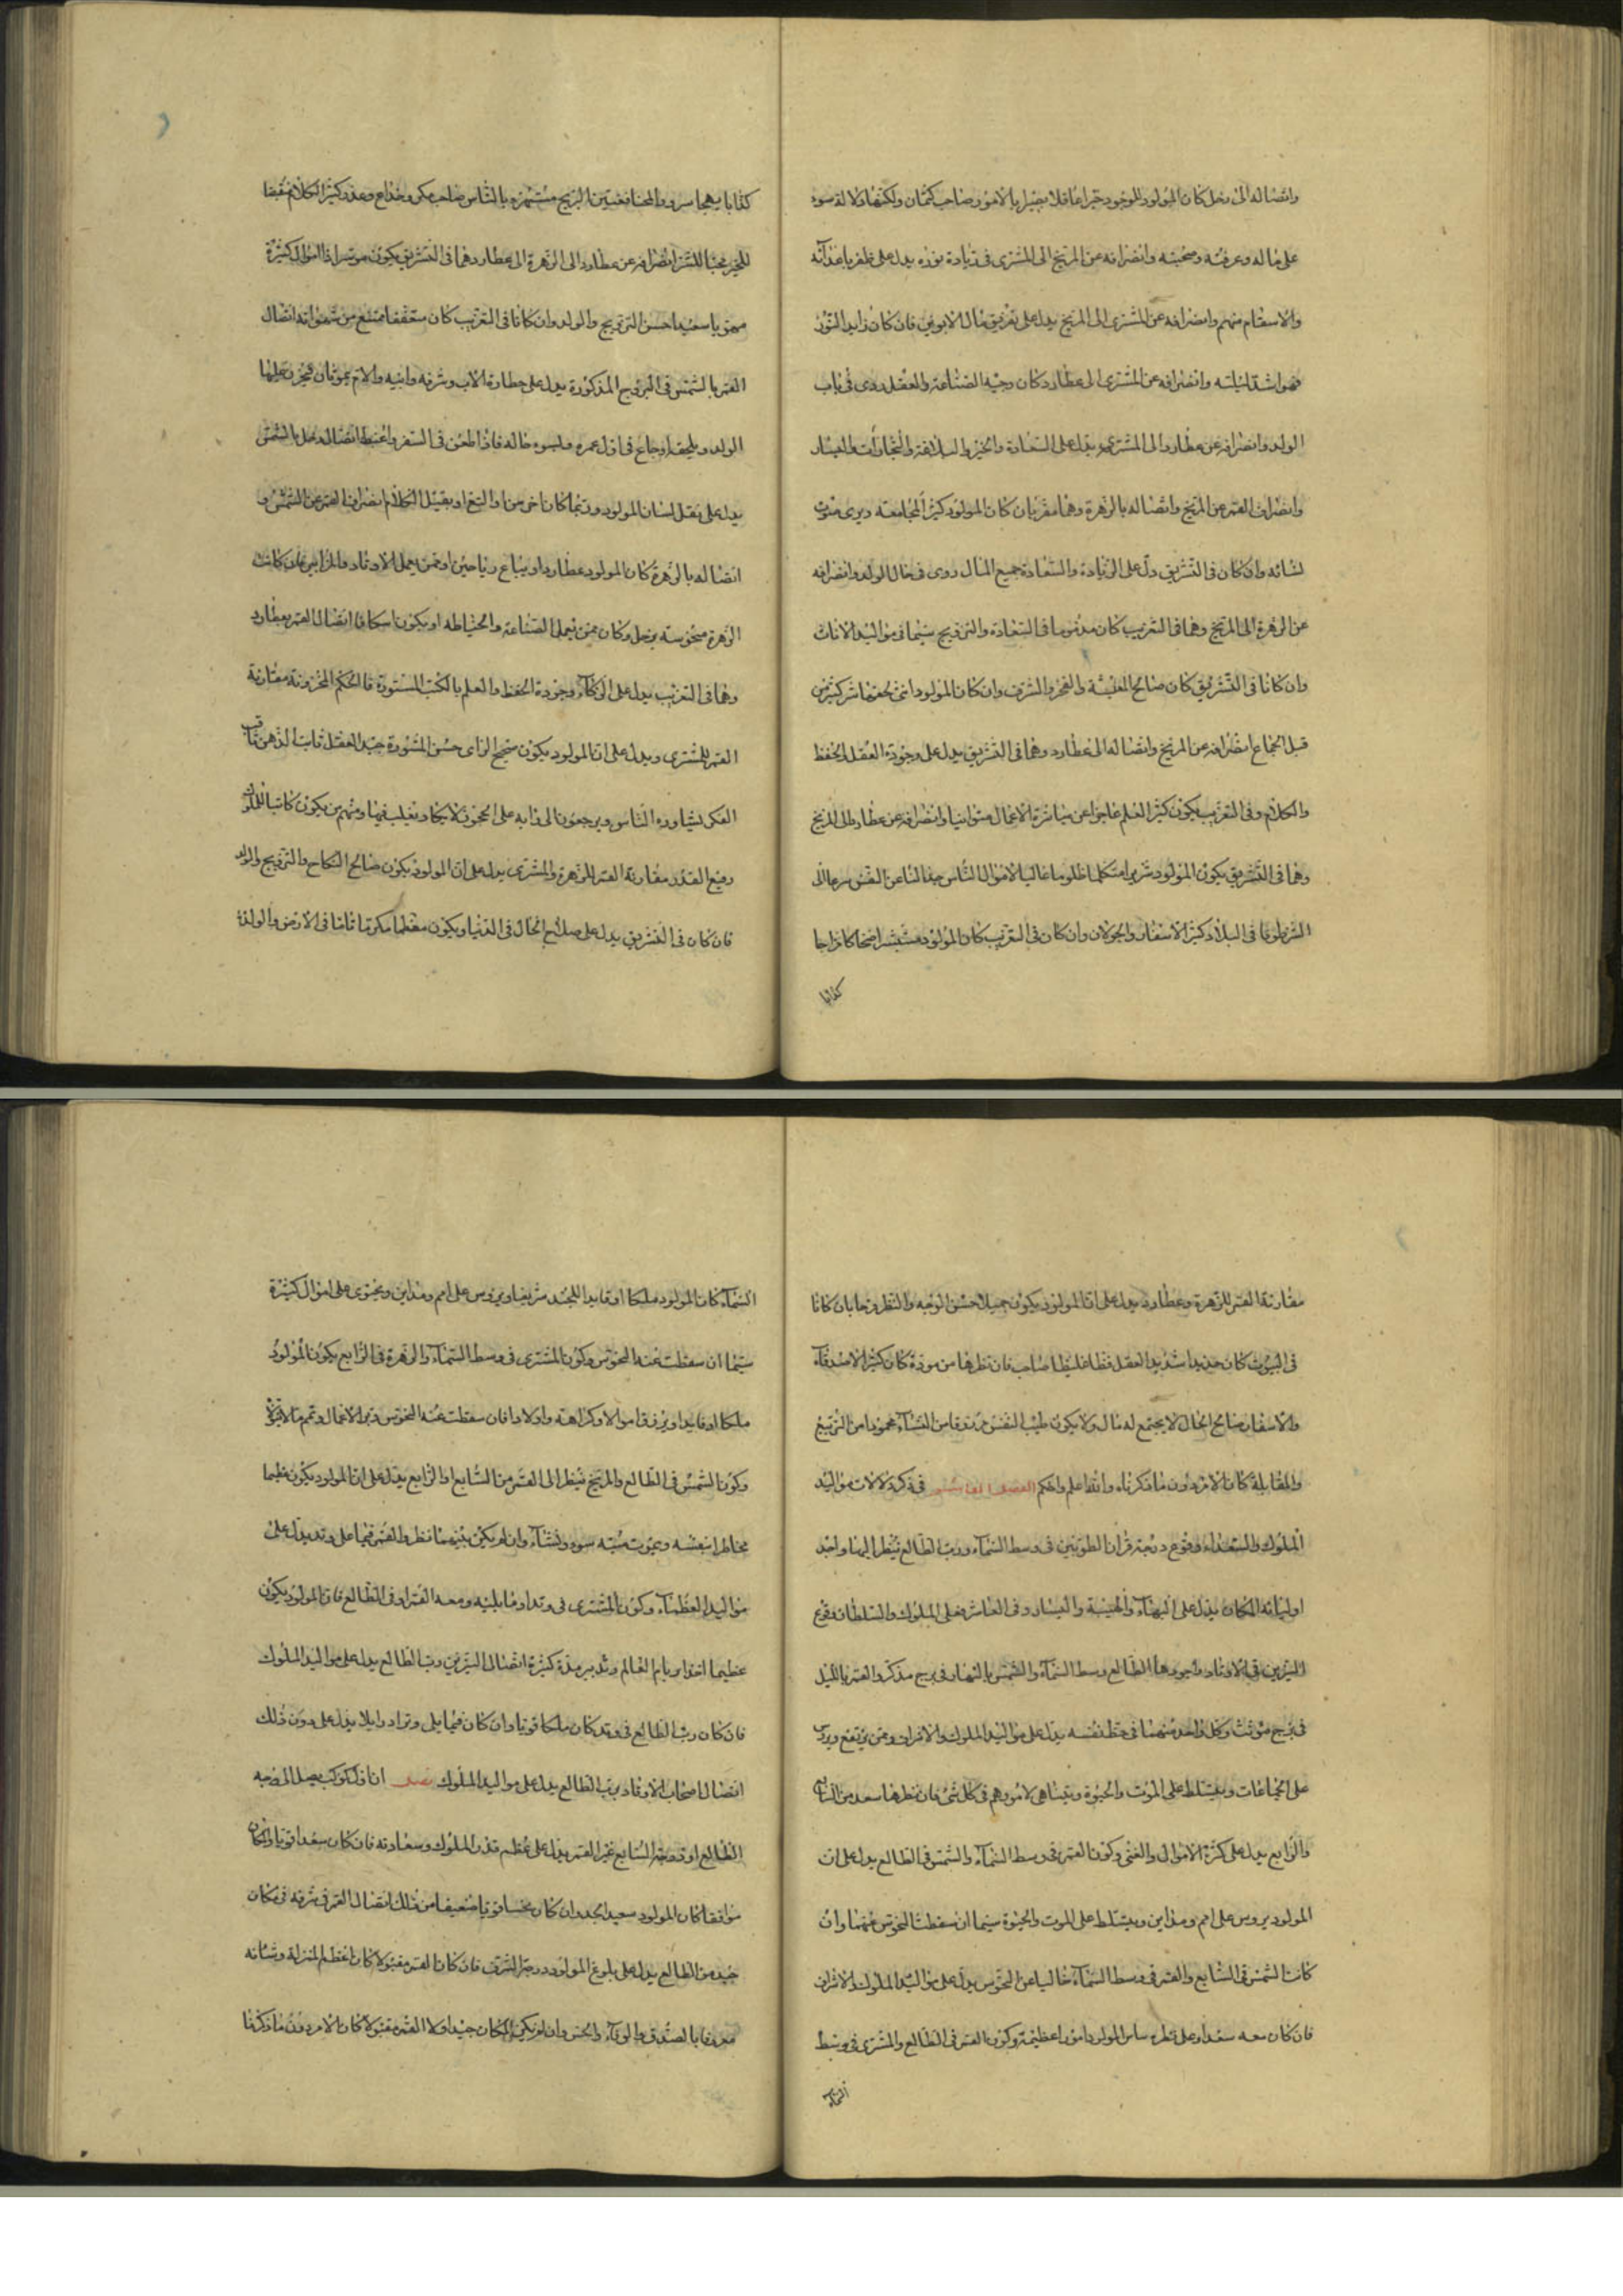 واتصاله الى زحل كان المولود الموجود خيرا عاقلا بصيرا بالامور صاحب كتمان ولكنها دلالة سوء
على ماله وعرفه وصحبته وانصرافه عن المريخ الى المشترى فى زيادة نوره يدل على ظفر باعدآئه
والاسقام منهم وانصرافه عن المشترى الى المريخ يدل على تفريق مال الابوين فان كان زايد النور
فهو اشد لبليته وانصرافه عن المشترى الى عطارد كان وجيه الصناعة والعقل ردى فى باب
الولد وانصرافه عن عطارد الى المشترى يدل على السعادة والخير والبلاغة والتجارات واليسار
وانصراف القمر عن المريخ واتصاله بالزهرة وهما مغربان كان المولود كثير المجامعة ويرى موت
نسائه وان كان فى التشريق دل على الزيادة والسعادة جميع المال ردى فى حال الولد وانصرافه
عن الزهرة الى المريخ وهما فى التغريب كان مذموما فى السعادة والتزويج سيما فى مواليد الاناث
وان كانا فى التشريق كان صالح المعيشة والفخر والشرف وان كان المولود انثى لحقها شر كثير من
قبل الجماع انصرافه عن المريخ واتصاله الى عطارد وهما فى التشريق يدل على وجودة العقل والحفظ
والكلام وفى التغريب يكون كثير العلم عاجزا عن مباشرة الاعمال متوانيا وانصرافه عن عطارد الى المريخ
وهما فى التشريق يكون المولود شريرا متكلما ظلوما غالبا لاموال الناس عن النفس سرعا الى
الشر طوفا فى البلاد كثير الاسفار والجولان وان كان فى التغريب كان المولود مستبشرا ضحاكا مزاحا
كذابا
كذابا يهجا سر والمخنا فغيتين البريج مستهزء بالناس صاحب مكر وخداع وعذر كثير الكلام مبغضا
للخير محبا للشر انصرافه عن عطارد الى الزهرة الى عطارد وهما فى التشريق يكون موسرا ذا اموال كثيرة
سعيدا حسن التزويج والولد وان كانا فى التغريب كان متعففا ممتنع من شهواته اتصال
القمر بالشمس فى البروج المذكورة يدل على خطارة الاب وشرفه وابنيه والام يموتان فيحزن عليها
الولد ويلحقه اوجاع فى اول عمره وليسوء حاله فاذا طعن فى السفر واغتبط اتصاله زحل بالشمس
يدل على ثقل لسان المولود وربما كان اخرس او التغ او بقيل الكلام انصراف القمر عن الشمس و
اتصاله بالزهرة كان المولود عطارا او يباع رياحين او ممن يعمل الاوتاد والمزامير فان كانت
الزهرة منحوسة بزحل وكان ممن يعمل الصناعة والخياطة او يكون اسكافا اتصال القمر بعطارد
وهما فى التغريب يدل على الذكاء وجودة الحفظ والعلم بالكتب المستورة والحكم المخزونة مقارنة
القمر للمشترى ويدل على ان المولود يكون صحيح الراى حسن المشورة جيد العقل ثابت الذهن ثاقب
الفكر لشياوره الناس ويرجعون الى رايه على الحجون لا يكاد تغلب فيها ومنهم من يكون كاتبا للملوك
رفيع القدر مقارنة القمر للزهرة والمشترى يدل على ان المولود يكون صالح النكاح والتزويج والولد
فان كان فى التشريق يدل على صلاح الحال فى الدنيا ويكون معظما مكرما تاما فى الارض والولدة
مقارنة القمر للزهرة وعطارد يدل على ان المولود يكون جميلا حسن الوجه والنظر وحابا فان كانا
فى البيوت كان حديدا شديد العقل فظا غليظا صاحب فان نظرها من مودة كان كثير الاصدقآء
والاسفار صالح الحال لا يجتمع له مال ولا يكون طيب النفس مرزوقا من النسآء محمودا من التربيع
والمقابلة كان الامر دون ما ذكرناه والله اعلم واحكم الفصل العاشر فى ذكر دلالات مواليد
الملوك والسعداء وقوع درجة قران العلويين فى وسط السمآء ورب الطالع ينظر اليها واحد
او ليانه المكان يدل على البهاء والهيبة واليسار وفى العاشر فعلى الملوك والسلطان وقوع
النيرين فى الاوتاد واجودها الطالع وسط السمآء والشمس بالنهار فى برج مذكر والقمر بالليل
فى برج مونث وكل واحد منهما فى حظ نفسه يدل على مواليد الملوك والاشراف وممن يرتفع ويرس
على الجماعات ويتسلط على الموت والحيوة ويتناهى لامورهم فى كل شئ فان نظرها سعد من الثانى
والرابع يدل على كثرة الاموال والغنى وكون القمر فى وسط السمآء والشمس فى الطالع يدل على ان
المولود يروس على امم ومداين ويتسلط على الموت والحيوة سيما ان سقطت النحوس عنهما وان
كانت الشمس فى السابع والقمر فى وسط السمآء خاليا عن النحوس يدل على مواليد الملوك والاشراف
فان كان معه سعد او على نظره ساس المولود امورا عظيمة وكون القمر فى الطالع والمشترى فى وسط
السمآء
السمآء كان المولود ملكا او قايد اللجند شريفا ويروس على امم ومداين ويحتوى على اموال كثيرة
سيما ان سقطت عنه النحوس وكون المشترى فى وسط السمآء والزهرة فى الرابع يكون المولود
ملكا او قايدا ويرزق اموالا وكراهة واولادا فان سقطت عنه النحوس دبر الاعمال وتمم
وكون الشمس فى الطالع والمريخ ينظر الى القمر من السابع او الرابع يدل على ان المولود يكون عظيما
مخاطرا بنفسه ويموت ميتة سوء وفنآء وان لم يكن بينهما نظر والقمر فيما على وتد يدل على
مواليد العظمآء وكون المشترى فى وتد او ما يليه ومعه القمر او فى الطالع فان المولود يكون
عظيما اقدارا يام العالم وتدبير مدة كثيرة اتصال النيرين ورب الطالع يدل على مواليد الملوك
فان كان رب الطالع فى وتد كان ملكا قويا وان كان فيما يلى وتدا دوايلا يدل على دون ذلك
اتصال اصحاب الاوتاد برب الطالع يدل على مواليد الملوك فصل ان اول كوكب يصل الى درجة
الطالع او درجة السابع غير القمر يدل على عظم قدر الملوك وسعادته فان كان سعدا قويا والمكان
موافقا كان المولود سعيد الجد وان كان نحسا قويا ضعيفا من ذلك اتصال القمر فى شرفه فى مكان
جيد من الطالع يدل على بلوغ المولود درجة الشرف فان كان القمر مقبولا كان اعظم المنزلة وشانه
معروفا بالصدق والوفآء والحسن وان لم يكن المكان جيدا ولا القمر مقبولا كان الامر دون ما ذكرنا